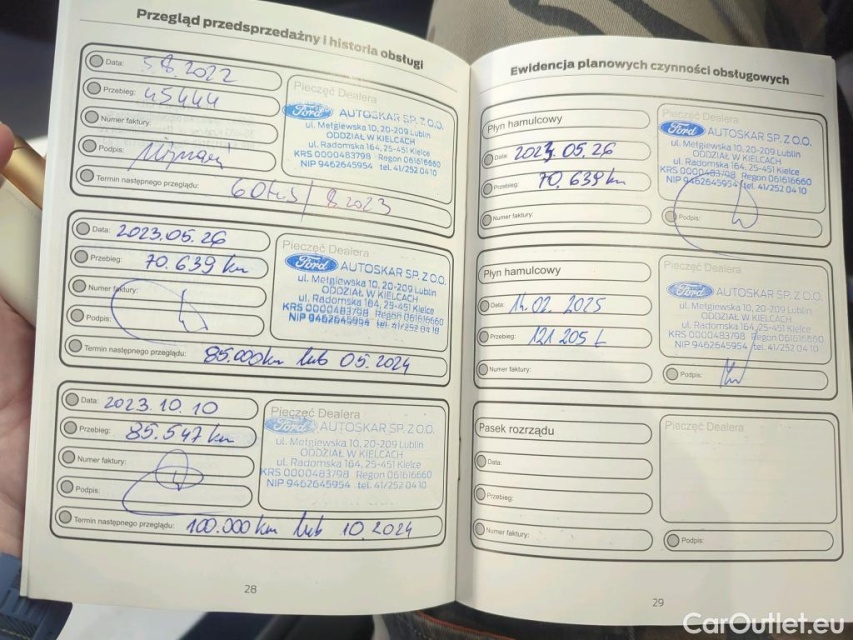 Przegląd przedsprzedażny i historia obsługi
Data: 5 8.2022
Przebieg: 45444
Numer faktury:
Podpis:
Termin następnego przeglądu: 60tyś/8.2023
Pieczęć Dealera
Ford AUTOSKAR SP. Z O.O.
ul. Metgiewska 10, 20-209 Lublin
ODDZIAŁ W KIELCACH
ul. Radomska 164, 25-451 Kielce
KRS 0000483798 Regon 061616660
NIP 9462645954 tel. 41/252 04 10
Data: 2023.05.26
Przebieg: 70.639 km
Numer faktury:
Podpis:
Termin następnego przeglądu: 85.000km lub 05.2024
Pieczęć Dealera
Ford AUTOSKAR SP. Z O.O.
ul. Metgiewska 10, 20-209 Lublin
ODDZIAŁ W KIELCACH
ul. Radomska 164, 25-451 Kielce
KRS 0000483798 Regon 061616660
NIP 9462645954 tel. 41/252 04 10
Data: 2023.10.10
Przebieg: 85.547 km
Numer faktury:
Podpis:
Termin następnego przeglądu: 100.000 km lub 10.2024
Pieczęć Dealera
Ford AUTOSKAR SP. Z O.O.
ul. Metgiewska 10, 20-209 Lublin
ODDZIAŁ W KIELCACH
ul. Radomska 164, 25-451 Kielce
KRS 0000483798 Regon 061616660
NIP 9462645954 tel. 41/252 04 10
28
Ewidencja planowych czynności obsługowych
Płyn hamulcowy
Data: 2023.05.26
Przebieg: 70.639 km
Numer faktury:
Pieczęć Dealera
Ford AUTOSKAR SP. Z O.O.
ul. Metgiewska 10, 20-209 Lublin
ODDZIAŁ W KIELCACH
ul. Radomska 164, 25-451 Kielce
KRS 0000483798 Regon 061616660
NIP 9462645954 tel. 41/252 04 10
Podpis:
Płyn hamulcowy
Data: 14.02.2025
Przebieg: 121 205
Numer faktury:
Pieczęć Dealera
Ford AUTOSKAR SP. Z O.O.
ul. Metgiewska 10, 20-209 Lublin
ODDZIAŁ W KIELCACH
ul. Radomska 164, 25-451 Kielce
KRS 0000483798 Regon 061616660
NIP 9462645954 tel. 41/252 04 10
Podpis:
Pasek rozrządu
Data:
Przebieg:
Numer faktury:
Pieczęć Dealera
Podpis:
29
CarOutlet.eu